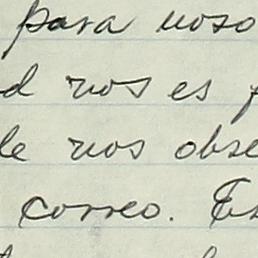 para noso
d nos es
le nos obse
correo. Es